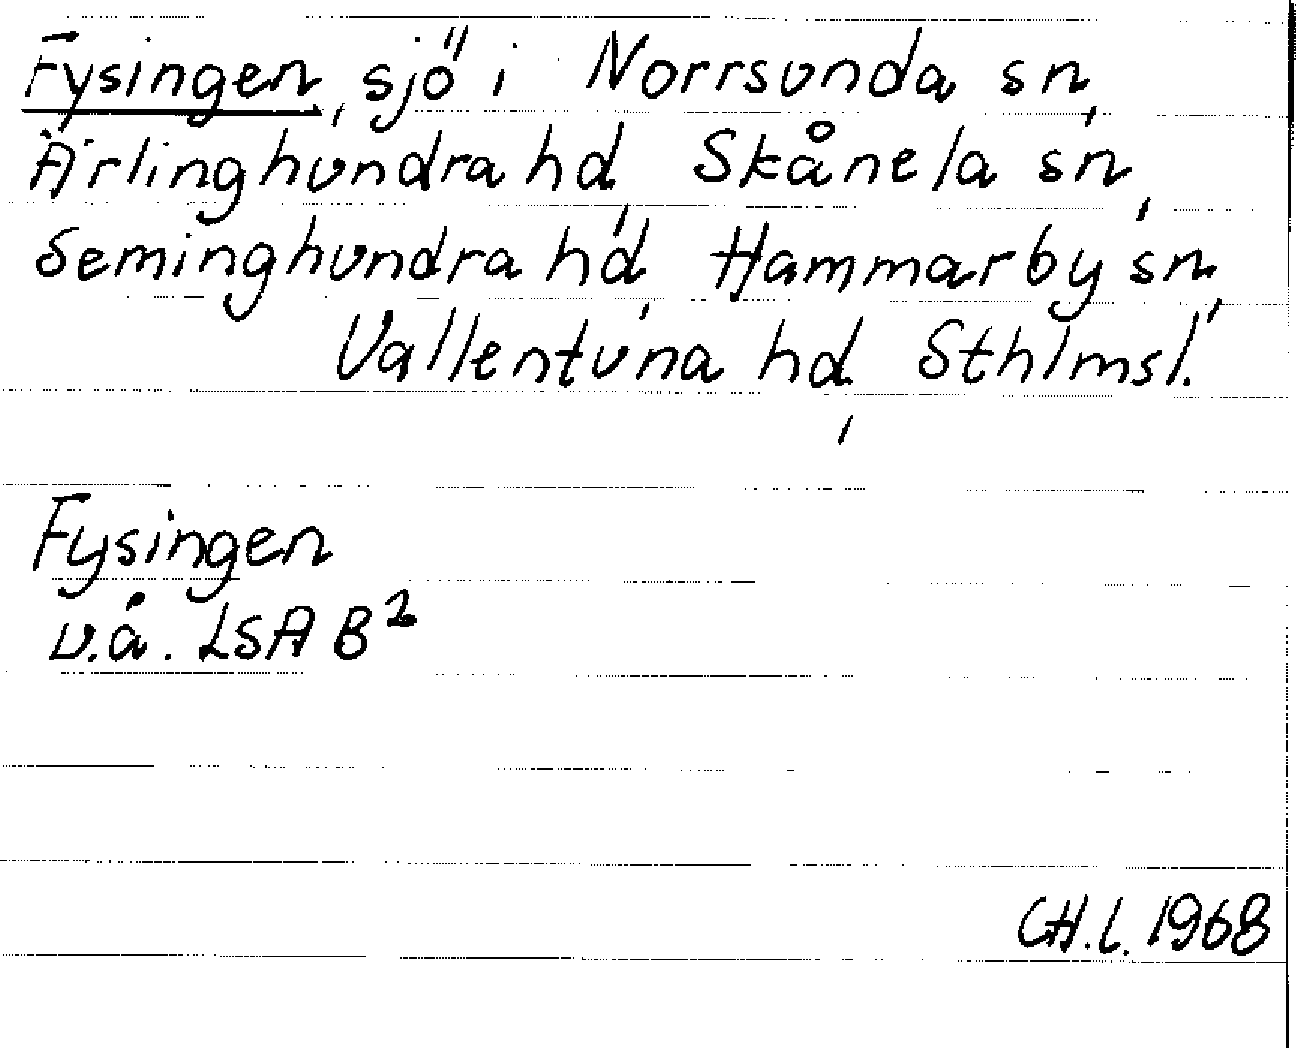 Fysingen, sjö i Norrsunda sn,
Ärlinghundra hd, Skånela sn,
Seminghundra hd, Hammarby sn,
Vallentuna hd, Sthlmsl.
Fysingen
v.å. LSA B²
CH.l. 1968